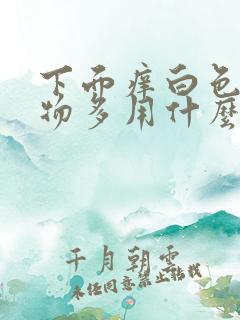 下面痒白色
物多用什么
千月朝雲
未经同意禁止转载